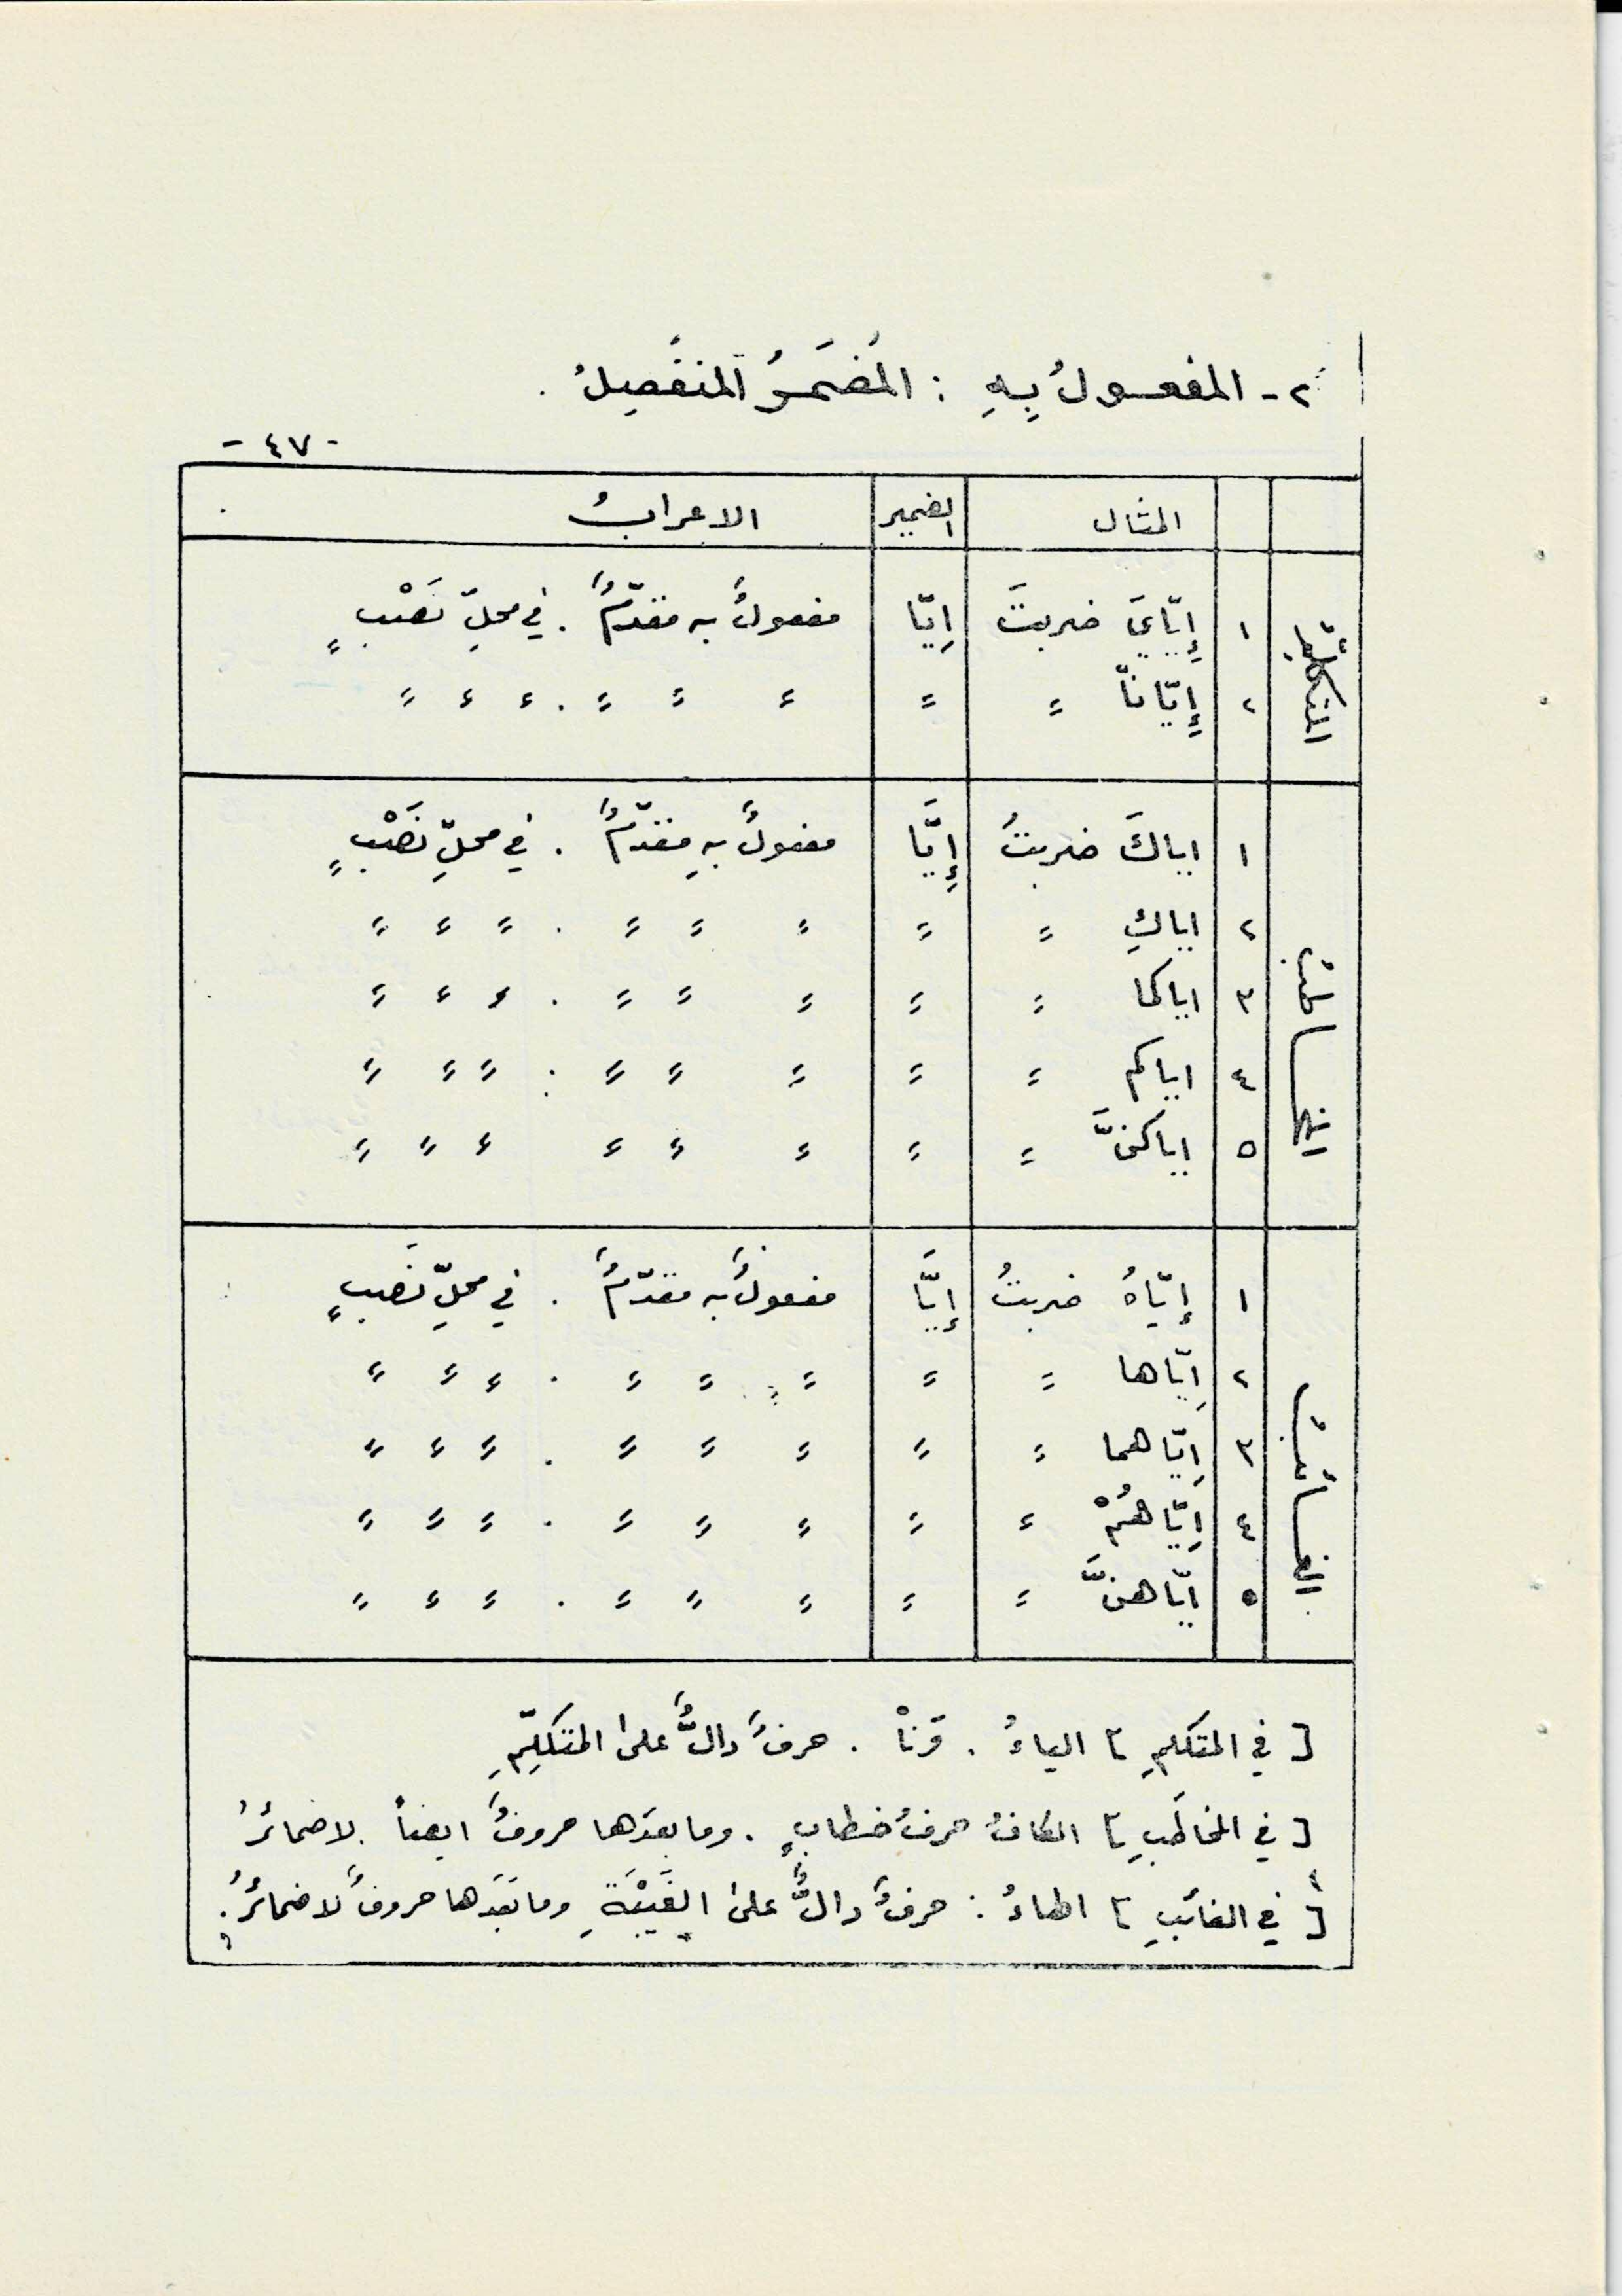 ٢ - المفعولُ بِهِ : المُضمَرُ المنفَصِلُ .
- ٤٧ -
المثال الضمير الاعرابُ
المتكلِّمُ
١ إِيّايَ ضربتَ اِيّا مفعولٌ به مقدّمٌ . في محلِّ نَصْبٍ
٢ إِيّانا " " " " " . " " "
المخاطَبُ
١ اياكَ ضربتُ إِيَّا مفعولٌ بهِ مقدّمٌ . في محلِّ نَصْبٍ
٢ اياكِ " " " " " . " " "
٣ اياكما " " " " " . " " "
٤ اياكم " " " " " . " " "
٥ اياكنَّ " " " " " " " "
الغائبُ
١ إيّاهُ ضربتُ إيَّا مفعولٌ به مقدّمٌ . في محلِّ نَصبٍ
٢ اِيّاها " " " " " . " " "
٣ اِيّاهما " " " " " . " " "
٤ اِيّاهُمْ " " " " " . " " "
٥ ايّاهنَّ " " " " " . " " "
[ في المتكلمِ ] الياءُ . وَناْ . حرفٌ دالٌّ على المتكلِّمِ
[ في المخاطَبِ ] الكافُ حرفُ خطابٍ . وما بعدَها حروفٌ ايضاً لا ضمائرُ
[ في الغائبِ ] الهاءُ : حرفٌ دالٌّ على الغَيْبَةِ وما بَعدَها حروفٌ لا ضمائرُ .